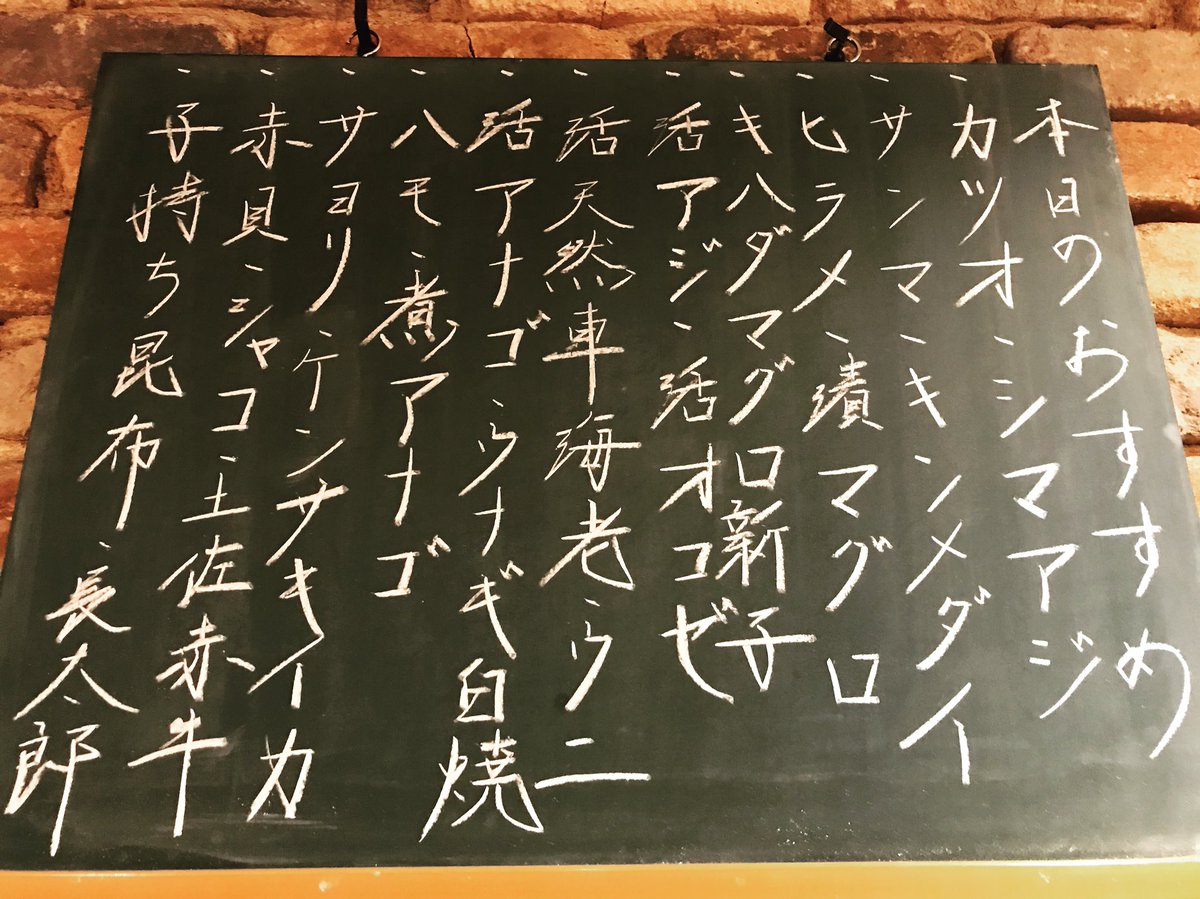 本日のおすすめ
-カツオ-シマアジ
-サンマ-キンメダイ
-ヒラメ-漬マグロ
-キハダマグロ新子
-活アジ-活オコゼ
-活天然車海老-ウニ
-活アナゴ-ウナギ白焼
-ハモ-煮アナゴ
-サヨリ-ケンサキイカ
-赤貝-シャコ-土佐赤牛
-子持ち昆布-長太郎